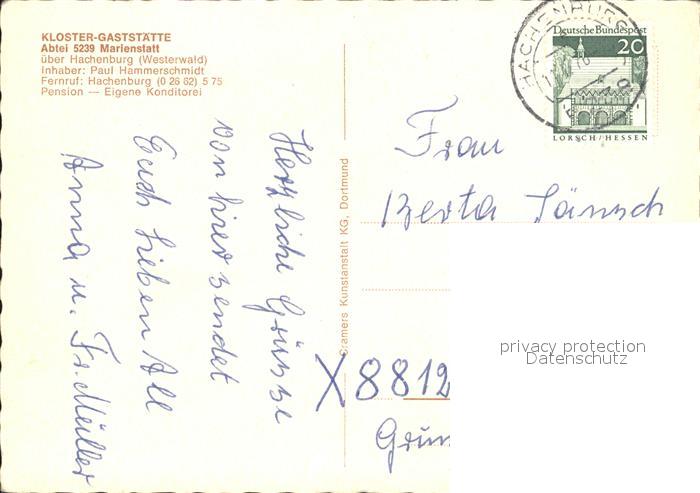 KLOSTER-GASTSTÄTTE
Abtei 5239 Marienstatt
über Hachenburg (Westerwald)
Inhaber: Paul Hammerschmidt
Fernruf: Hachenburg (0 26 62) 5 75
Pension — Eigene Konditorei
Herzliche Grüsse
von hier sendet
Euch lieben All
Anna u. Fr. Müller
Cramers Kunstanstalt KG, Dortmund
HACHENBURG
Deutsche Bundespost
20
LORSCH/HESSEN
Frau
Berta Jänsch
X8812
privacy protection
Datenschutz